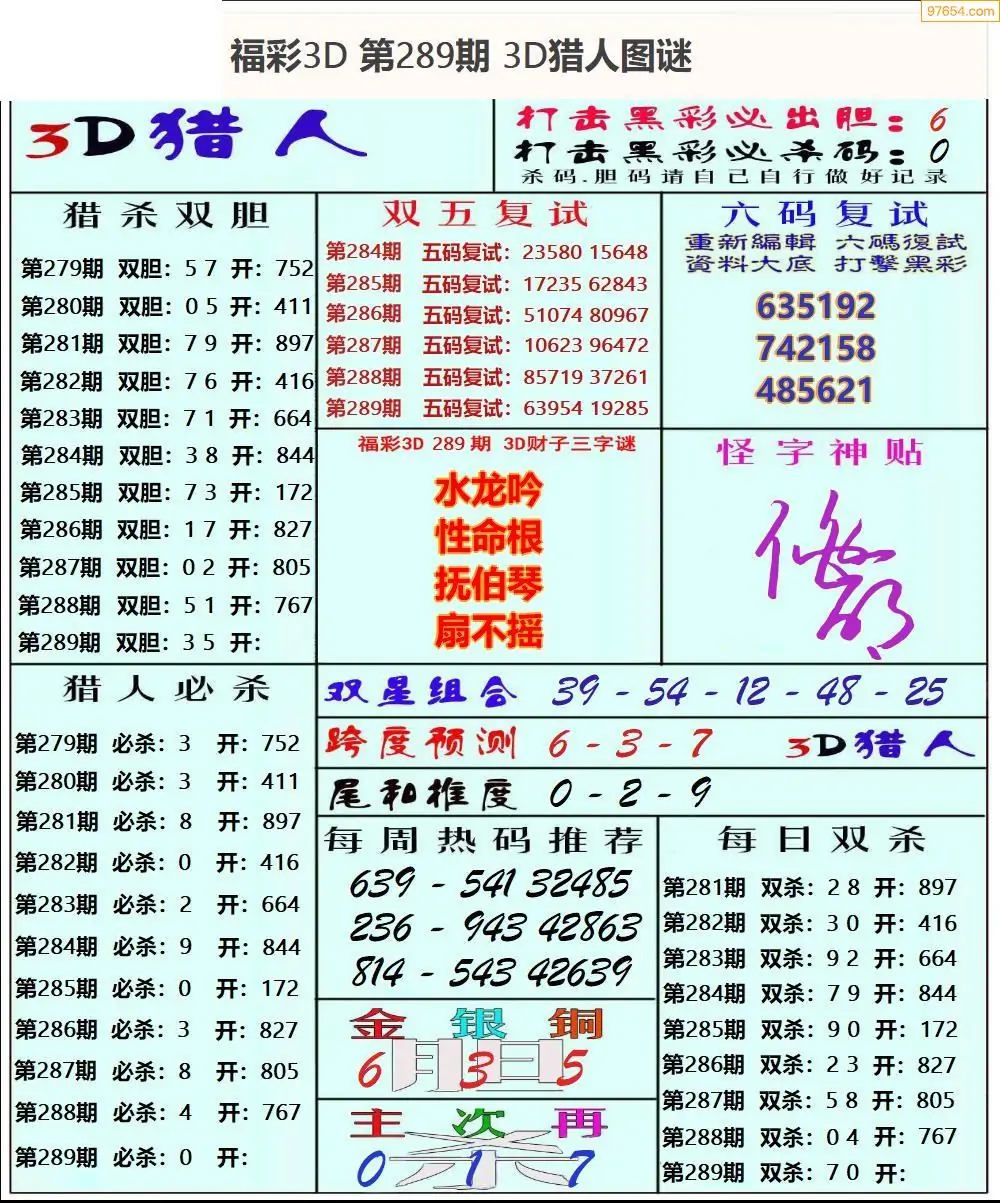 97654.com
福彩3D 第289期 3D猎人图谜
3D猎人
打击黑彩必出胆：6
打击黑彩必杀码：0
杀码.胆码请自己自行做好记录
猎杀双胆
第279期 双胆：5 7 开：752
第280期 双胆：0 5 开：411
第281期 双胆：7 9 开：897
第282期 双胆：7 6 开：416
第283期 双胆：7 1 开：664
第284期 双胆：3 8 开：844
第285期 双胆：7 3 开：172
第286期 双胆：1 7 开：827
第287期 双胆：0 2 开：805
第288期 双胆：5 1 开：767
第289期 双胆：3 5 开：
双五复试
第284期 五码复试：23580 15648
第285期 五码复试：17235 62843
第286期 五码复试：51074 80967
第287期 五码复试：10623 96472
第288期 五码复试：85719 37261
第289期 五码复试：63954 19285
六码复试
重新編輯 六碼復試
資料大底 打擊黑彩
635192
742158
485621
福彩3D 289 期 3D财子三字谜
水龙吟
性命根
抚伯琴
扇不摇
怪字神贴
猎人必杀
第279期 必杀：3 开：752
第280期 必杀：3 开：411
第281期 必杀：8 开：897
第282期 必杀：0 开：416
第283期 必杀：2 开：664
第284期 必杀：9 开：844
第285期 必杀：0 开：172
第286期 必杀：3 开：827
第287期 必杀：8 开：805
第288期 必杀：4 开：767
第289期 必杀：0 开：
双星组合 39 - 54 - 12 - 48 - 25
跨度预测 6 - 3 - 7 3D猎人
尾和推度 0 - 2 - 9
每周热码推荐
639 - 541 32485
236 - 943 42863
814 - 543 42639
金银铜
胆
6 3 5
主次再
杀
0 1 7
每日双杀
第281期 双杀：2 8 开：897
第282期 双杀：3 0 开：416
第283期 双杀：9 2 开：664
第284期 双杀：7 9 开：844
第285期 双杀：9 0 开：172
第286期 双杀：2 3 开：827
第287期 双杀：5 8 开：805
第288期 双杀：0 4 开：767
第289期 双杀：7 0 开：